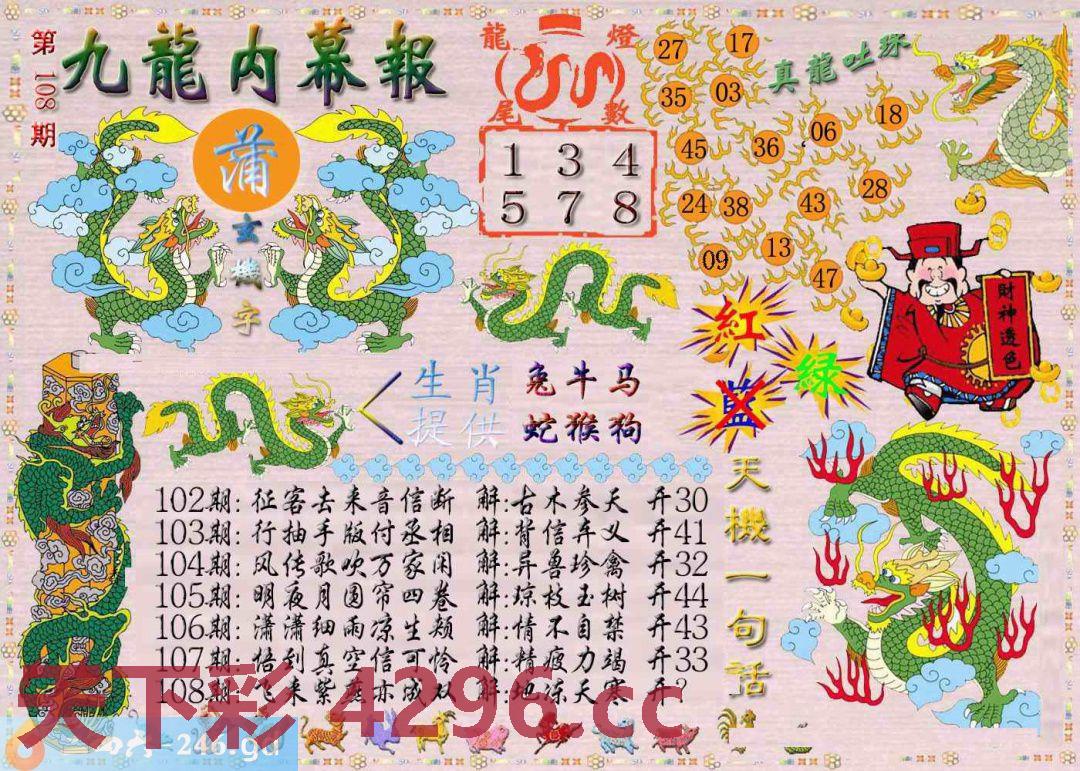 第108期
九龍内幕報
蒲
玄機字
龍燈
尾數
1 3 4
5 7 8
真龍吐珠
27 17
35 03
45 36 06 18
24 38 43 28
09 13 47
財神透色
紅
藍
绿
生肖 兔牛马
提供 蛇猴狗
天機一句話
102期: 征客去来音信断 解:古木参天 开30
103期: 行抽手版付丞相 解:背信弃义 开41
104期: 风传歌吹万家闲 解:异兽珍禽 开32
105期: 明夜月圆帘四卷 解:琼枝玉树 开44
106期: 潇潇细雨凉生颊 解:情不自禁 开43
107期: 悟到真空信可怜 解:精疲力竭 开33
108期: 飞来紫燕亦成双 解:地冻天寒 开?
天下彩 4296.cc
=246.gd